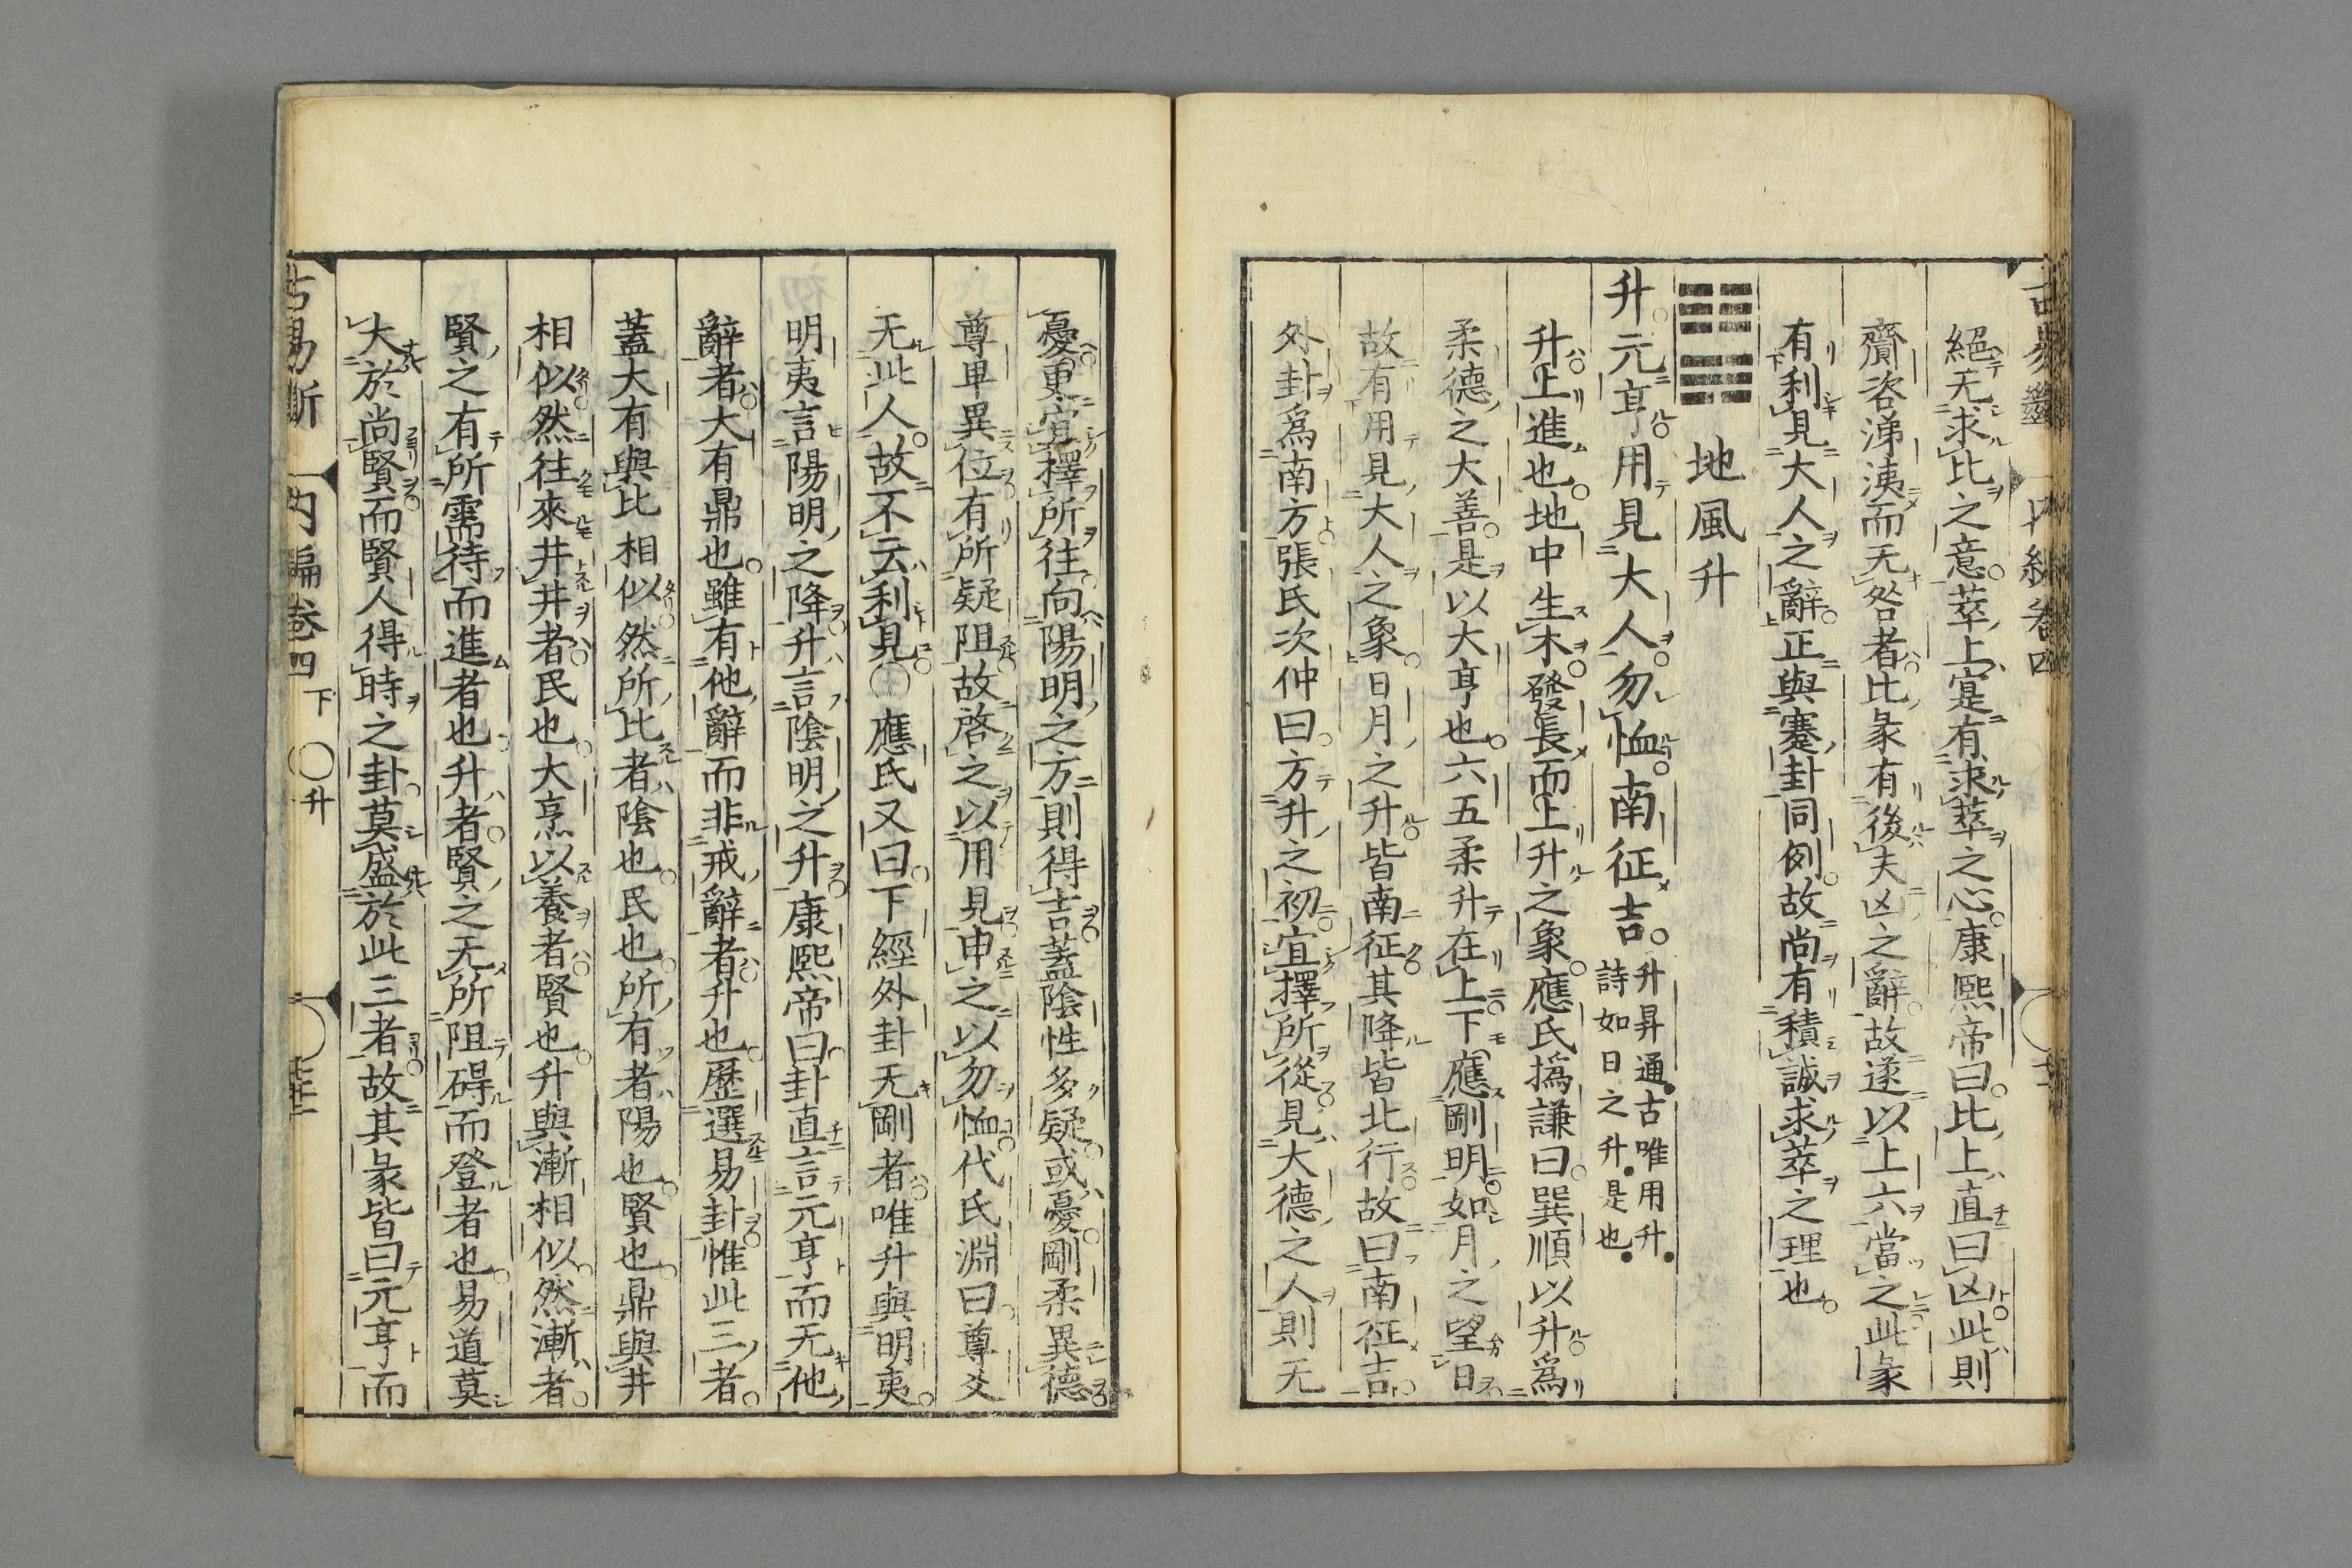 絕无求比之意萃上寔有求萃之心康熙帝曰比上直曰凶此則
齎咨涕洟而无咎者比彖有後夫凶之辭故遂以上六當之此彖
有利見大人之辭正與蹇卦同例故尚有積誠求萃之理也
地風升
升元亨用見大人勿恤南征吉
升昇通古唯用升
詩如日之升是也
升上進也地中生木發長而上升之象應氏撝謙曰巽順以升爲
柔德之大善是以大亨也六五柔升在上下應剛明如月之望日
故有用見大人之象日月之升皆南征其降皆北行故曰南征吉
外卦爲南方張氏次仲曰方升之初宜擇所從見大德之人則无
憂更宜擇所往向陽明之方則得吉蓋陰性多疑或憂剛柔異德
尊卑異位有所疑阻故啓之以用見申之以勿恤代氏淵曰尊爻
无此人故不云利見〇應氏又曰下經外卦无剛者唯升與明夷
明夷言陽明之降升言陰明之升康熙帝曰卦直言元亨而无他
辭者大有鼎也雖有他辭而非戒辭者升也歷選易卦惟此三者
蓋大有與比相似然所比者陰也民也所有者陽也賢也鼎與井
相似然往來井井者民也大烹以養者賢也升與漸相似然漸者
賢之有所需待而進者也升者賢之无所阻碍而登者也易道莫
大於尚賢而賢人得時之卦莫盛於此三者故其彖皆曰元亨而
古易斷 內編卷四下 〇升